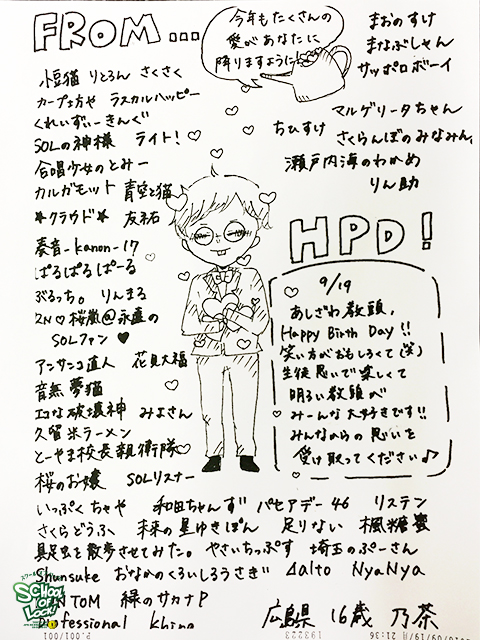 FROM...
今年もたくさんの
愛があなたに
降りますように!
まおのすけ
まなぶしゃん
サッポロボーイ
小豆猫 りとろん さくさく
カープ坊や ラスカルハッピー
くれいずぃーきんぐ
SOLの神様 ライト!
合唱少女のとみー
カルガモット 青空と猫
*クラウド* 友祐
奏音-kanon-17
ぱるぱるぱーる
ぶるっち。 りんまる
桜嵐@永遠の
SOLファン♥
アンサンコ直人 花見大福
音無夢猫
エコな破壊神 みよさん
久留米ラーメン
とーやま校長親衛隊
桜のお嬢 SOLリスナー
マルゲリータちゃん
ちひすけ さくらんぼのみなみん、
瀬戸内海のわかめ
りん助
HPD!
9/19
あしざわ教頭、
Happy Birth Day!!
笑い方がおもしろくて(笑)
生徒思いで楽しくて
明るい教頭が
みーんな大好きです!!
みんなからの思いを
受け取ってください♪
いっぷくちゃや 和田ちゃんず パセアデー46 リステン
さくらどうふ 未来の星ゆきぽん 足りない 楓糖蜜
具足虫を散歩させてみた。 やさいちっぷす 埼玉のぷーさん
Shunsuke おなかのくろいしろうさぎ Aalto NyaNya
TOM 緑のサカナP
SCHOOL OF LOCK!
広島県 16歳 乃茶
P.001/001
193223
21:36